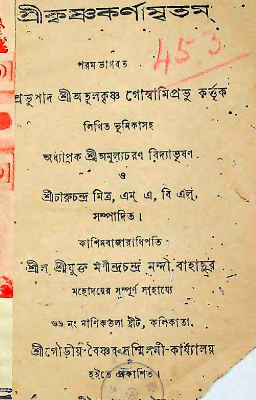 শ্রীকৃষ্ণকর্ণামৃতম্
453
পরম ভাগবত
প্রভুপাদ শ্রীঅতুলকৃষ্ণ গোস্বামিপ্রভু কর্ত্তৃক
লিখিত ভূমিকাসহ
অধ্যাপক শ্রীঅমূল্যচরণ বিদ্যাভূষণ
ও
শ্রীচারুচন্দ্র মিত্র, এম্ এ, বি এল্,
সম্পাদিত।
কাশিমবাজারাধিপতি
শ্রীল শ্রীযুক্ত মণীন্দ্রচন্দ্র নন্দী বাহাদুর
মহোদয়ের সম্পূর্ণ সাহায্যে
নং মাণিকতলা ষ্ট্রীট, কলিকাতা,
শ্রীগৌড়ীয়-বৈষ্ণব-সম্মিলনী-কার্য্যালয়
হইতে প্রকাশিত।